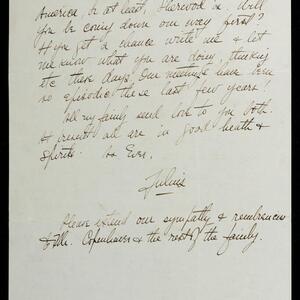 America, be at least, Sherwood Is. Will
you be coming down our way first?
If you get a chance write me & let
me know what you are doing, thinking
etc these days. Our meetings have been
so episodic these last few years!
All my family send love to you both.
At present all are in good health &
Spirits. As Ever,
Julius
Please extend our sympathy & remembrances
to Mr. Copenhaver & the rest of the family.